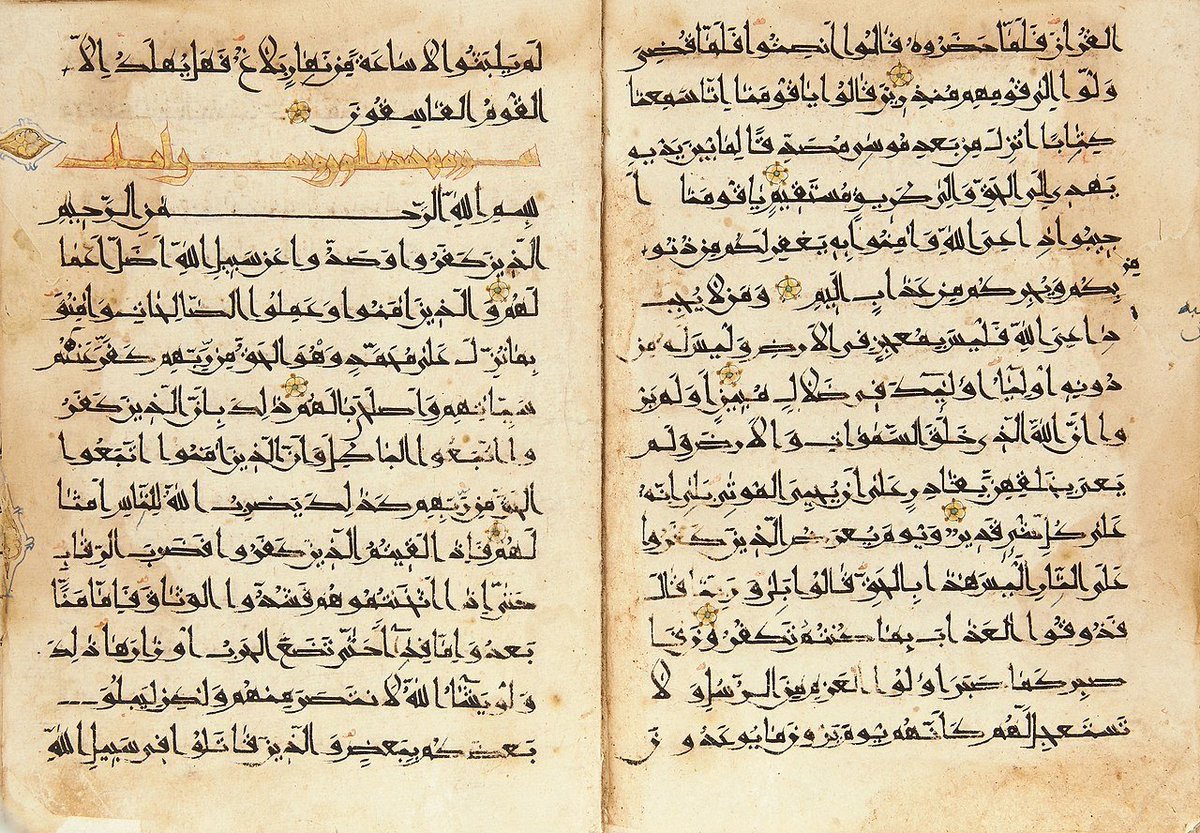 القران فلما حضروه قالوا انصتوا فلما قضي
ولّوا الى قومهم منذرين قالوا يا قومنا انا سمعنا
كتابا انزل من بعد موسى مصدقا لما بين يديه
يهدي الى الحق والى طريق مستقيم يا قومنا ا
جيبوا داعي الله وامنوا به يغفر لكم من ذنو
بكم ويجركم من عذاب اليم ومن لا يجب
داعي الله فليس بمعجز في الارض وليس له من
دونه اولياء اولئك في ضلال مبين اولم ير
وا ان الله الذي خلق السموات والارض ولم
يعي بخلقهن بقادر على ان يحيي الموتى بلى انه
على كل شيء قدير ويوم يعرض الذين كفروا
على النار اليس هذا بالحق قالوا بلى وربنا قال
فذوقوا العذاب بما كنتم تكفرون فا
صبر كما صبر اولوا العزم من الرسل ولا
تستعجل لهم كانهم يوم يرون ما يوعدون
لم يلبثوا الا ساعة من نهار بلاغ فهل يهلك الا
القوم الفاسقون
بسم الله الرحمن الرحيم
الذين كفروا وصدوا عن سبيل الله اضل اعما
لهم والذين امنوا وعملوا الصالحات وامنو
بما نزل على محمد وهو الحق من ربهم كفر عنهم
سيئاتهم واصلح بالهم ذلك بان الذين كفر
وا اتبعوا الباطل وان الذين امنوا اتبعوا
الحق من ربهم كذلك يضرب الله للناس امثا
لهم فاذا لقيتم الذين كفروا فضرب الرقاب
حتى اذا اثخنتموهم فشدوا الوثاق فاما منا
بعد واما فداء حتى تضع الحرب اوزارها ذلك
ولو يشاء الله لانتصر منهم ولكن ليبلو
بعضكم ببعض والذين قاتلوا في سبيل الله